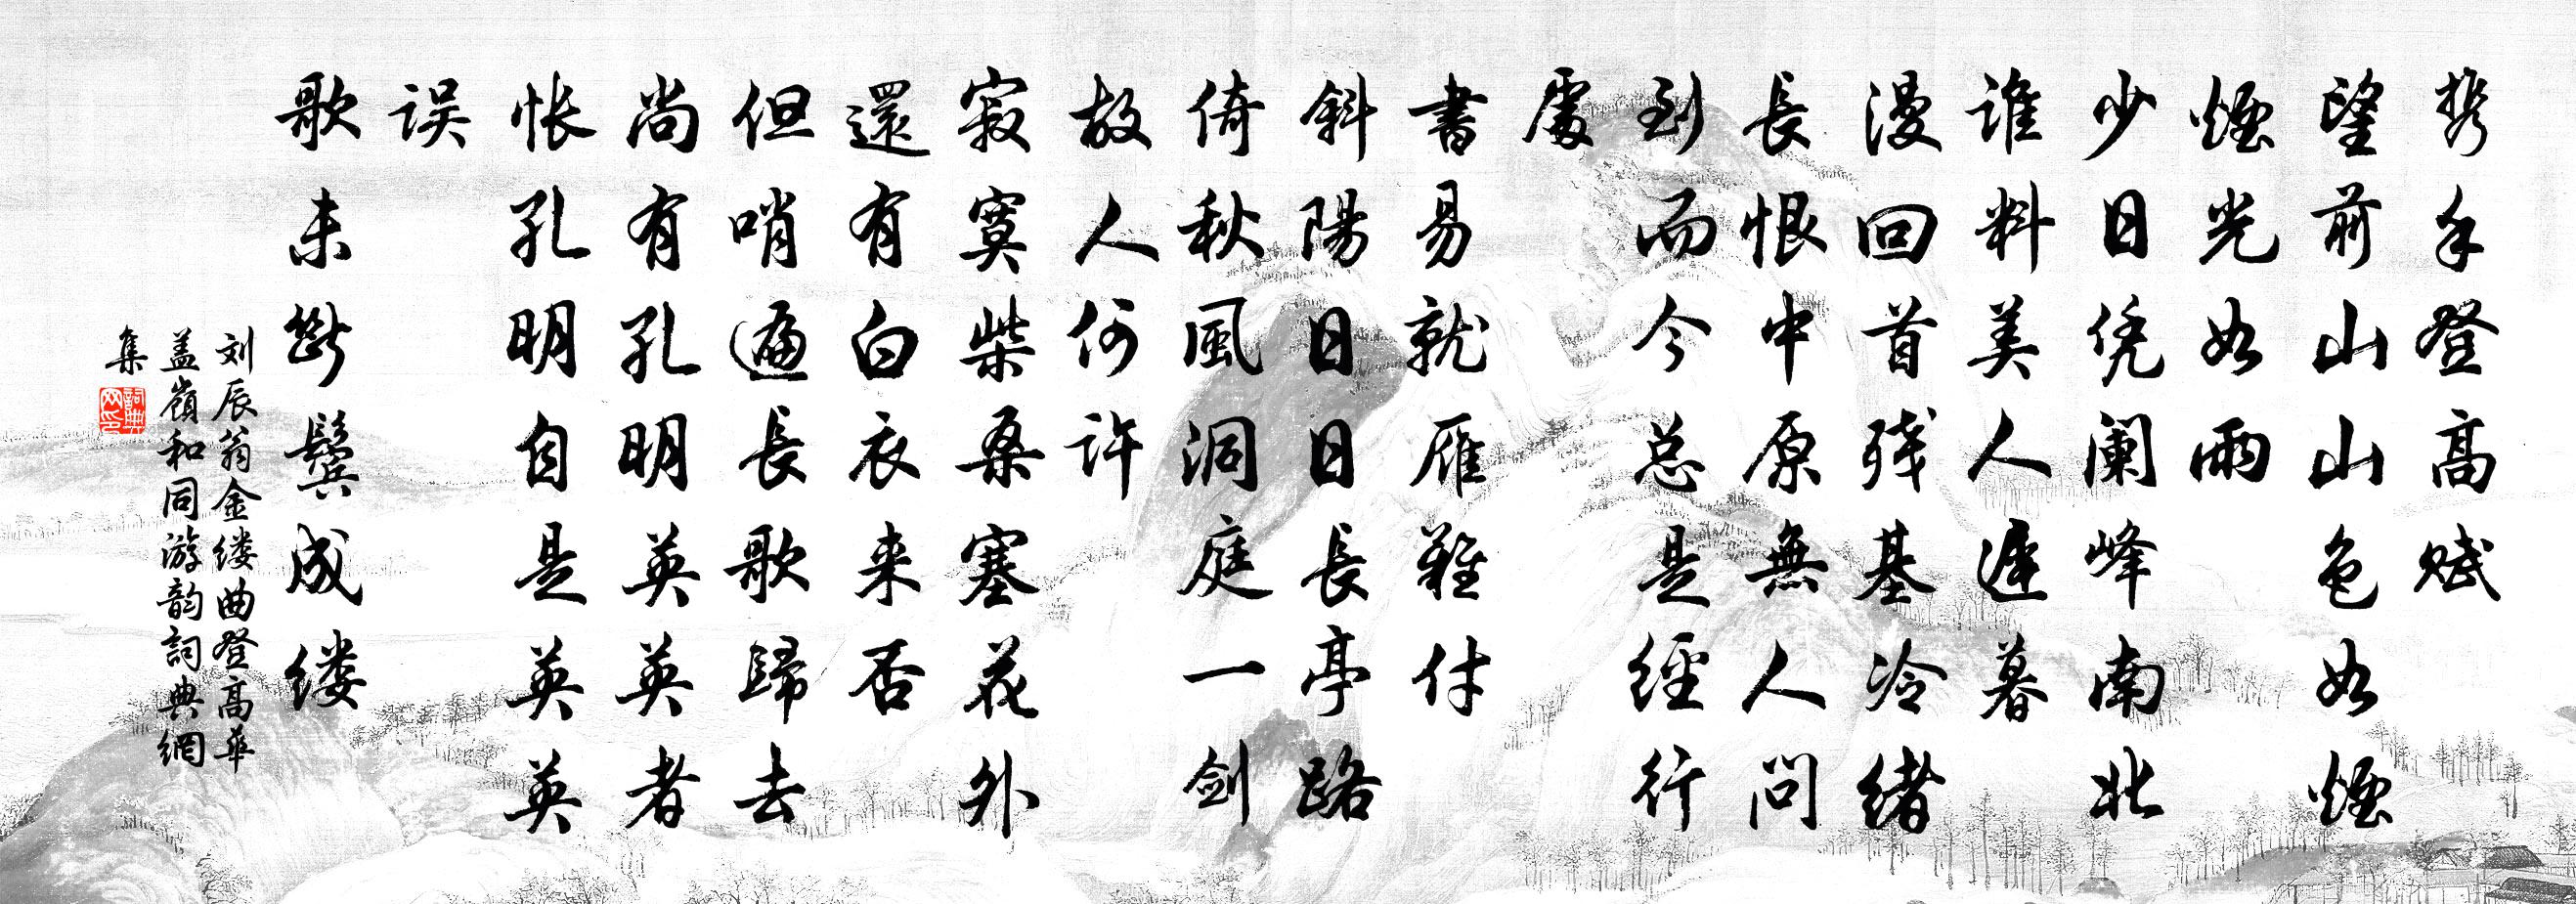 携手登高赋
望前山山色如煙
煙光如雨
少日凭阑峰南北
谁料美人遲暮
漫回首残基冷绪
長恨中原無人问
到而今总是經行
處
書易就雁難付
斜陽日日長亭路
倚秋風洞庭一剑
故人何许
寂寞柴桑塞花外
還有白衣来否
但哨遍長歌歸去
尚有孔明英英者
怅孔明自是英英
误
歌未断鬓成缕
刘辰翁金缕曲登高華
盖嶺和同游韵詞典網
集
詞典网印